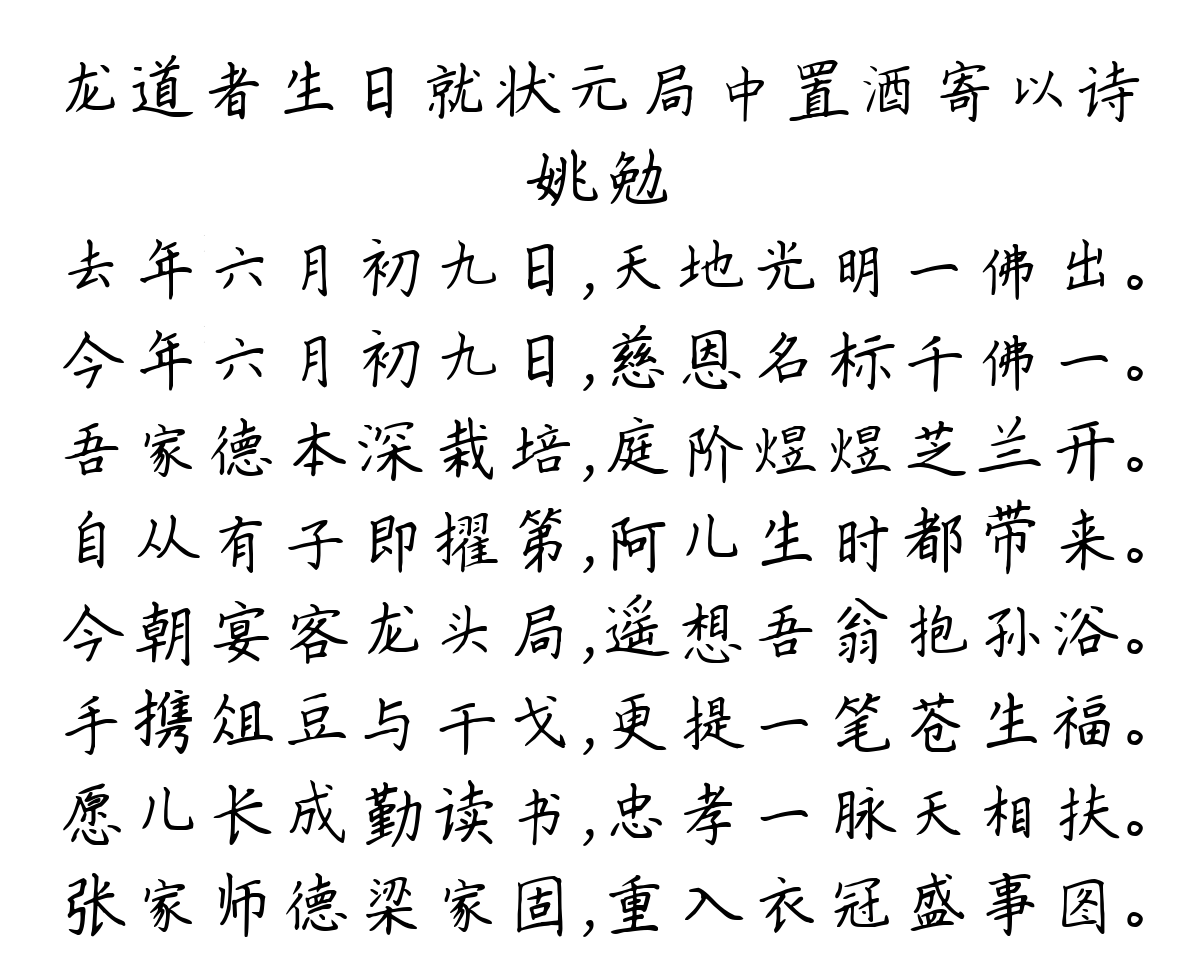 龙道者生日就状元局中置酒寄以诗
姚勉
去年六月初九日,天地光明一佛出。
今年六月初九日,慈恩名标千佛一。
吾家德本深栽培,庭阶煜煜芝兰开。
自从有子即擢第,阿儿生时都带来。
今朝宴客龙头局,遥想吾翁抱孙浴。
手携俎豆与干戈,更提一笔苍生福。
愿儿长成勤读书,忠孝一脉天相扶。
张家师德梁家固,重入衣冠盛事图。